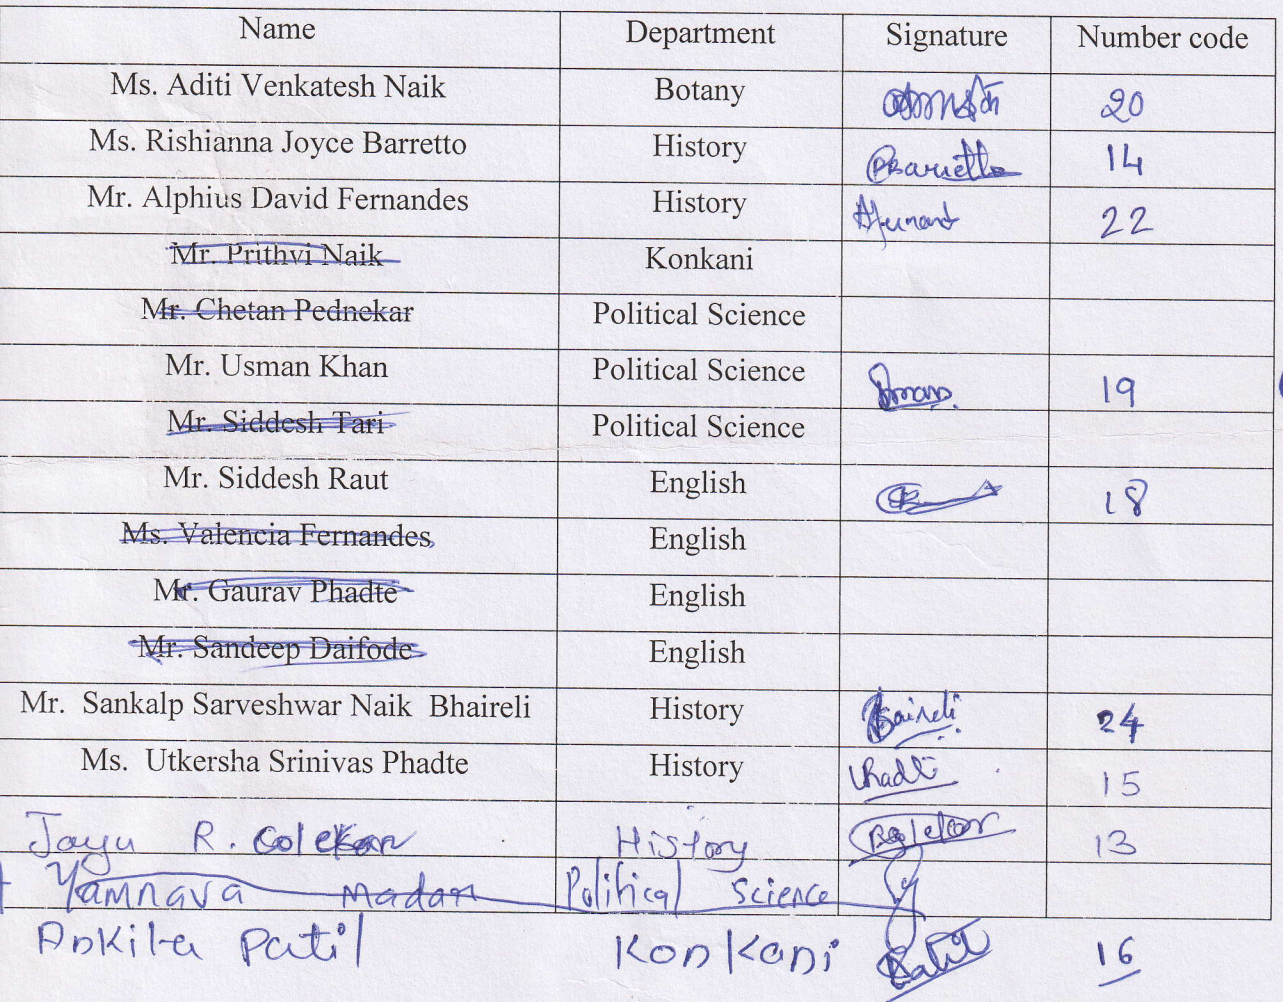 Name Department Signature Number code
Ms. Aditi Venkatesh Naik Botany 20
Ms. Rishianna Joyce Barretto History RBarretto 14
Mr. Alphius David Fernandes History 22
Mr. Prithvi Naik Konkani
Mr. Chetan Pednekar Political Science
Mr. Usman Khan Political Science 19
Mr. Siddesh Tari Political Science
Mr. Siddesh Raut English 18
Ms. Valencia Fernandes English
Mr. Gaurav Phadte English
Mr. Sandeep Daifode English
Mr. Sankalp Sarveshwar Naik Bhaireli History 24
Ms. Utkersha Srinivas Phadte History 15
Jayu R. Golekar History 13
Yamnava Madar Political Science
Ankita Patil Konkani 16